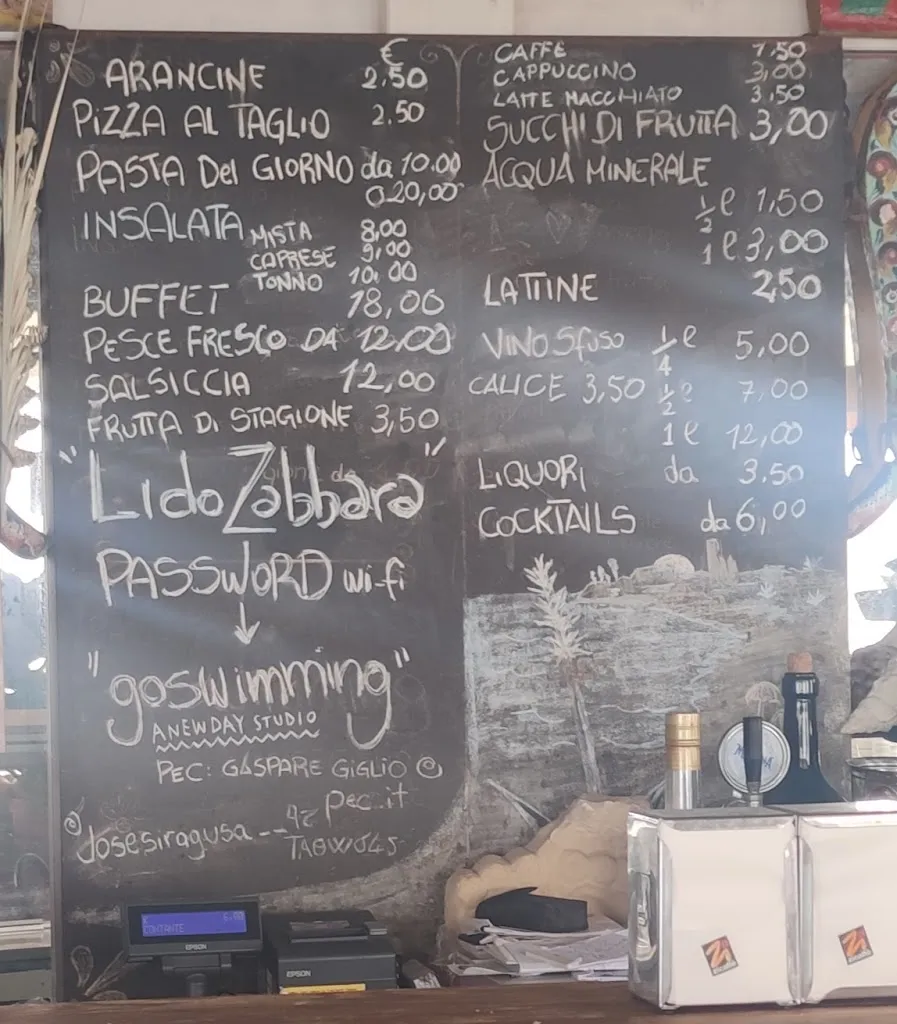 €
ARANCINE 2,50
PIZZA AL TAGLIO 2.50
PASTA Del GIORNO da 10.00
a 20,00
INSALATA MISTA 8,00
CAPRESE 9,00
TONNO 10,00
BUFFET 18,00
PESCE FRESCO DA 12,00
SALSICCIA 12,00
FRUTTA DI STAGIONE 3,50
"Lido Zabbara"
PASSWORD wi-fi
"goswimming"
ANEWDAY STUDIO
PEC: GASPARE GIGLIO @
pec.it
@Josesiragusa --
CAFFE 1,50
CAPPUCCINO 3,00
LATTE MACCHIATO 3,50
SUCCHI DI FRUTTA 3,00
ACQUA MINERALE
1/2 l 1,50
1 l 3,00
LATTINE 2,50
VINO Sfuso 1/4 l 5,00
CALICE 3,50 1/2 l 7,00
1 l 12,00
LIQUORI da 3.50
COCKTAILS da 6,00
CONTANTE
EPSON
EPSON